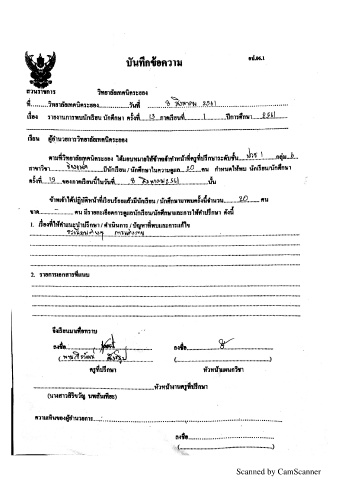 อป.อศ.1
บันทึกข้อความ
ส่วนราชการ วิทยาลัยเทคนิคระยอง
ที่.....วิทยาลัยเทคนิคระยอง..........วันที่.....8 สิงหาคม 2561
เรื่อง รายงานการพบนักเรียน นักศึกษา ครั้งที่...13...ภาคเรียนที่.....1.....ปีการศึกษา.....2561
เรียน ผู้อำนวยการวิทยาลัยเทคนิคระยอง
ตามที่วิทยาลัยเทคนิคระยอง ได้มอบหมายให้ข้าพเจ้าทำหน้าที่ครูที่ปรึกษาระดับชั้น...ปวช 1...กลุ่ม..6
สาขาวิชา..........มีนักเรียน / นักศึกษาในความดูแล...20...คน กำหนดให้พบ นักเรียน/นักศึกษา
ครั้งที่...13...ของภาคเรียนนี้ในวันที่.....8 สิงหาคม 2561.....นั้น
ข้าพเจ้าได้ปฏิบัติหน้าที่เรียบร้อยแล้วมีนักเรียน / นักศึกษามาพบครั้งนี้จำนวน.....20.....คน
ขาด.....-.....คน มีรายละเอียดการดูแลนักเรียน/นักศึกษาและการให้คำปรึกษา ดังนี้
1. เรื่องที่ให้คำแนะนำปรึกษา / ดำเนินการ / ปัญหาที่พบและการแก้ไข
2. รายการเอกสารที่แนบ
จึงเรียนมาเพื่อทราบ
ลงชื่อ.......... ลงชื่อ..........
ครูที่ปรึกษา หัวหน้าแผนกวิชา
..........หัวหน้างานครูที่ปรึกษา
ความเห็นของผู้อำนวยการ..........
ลงชื่อ..........
(..........)
Scanned by CamScanner